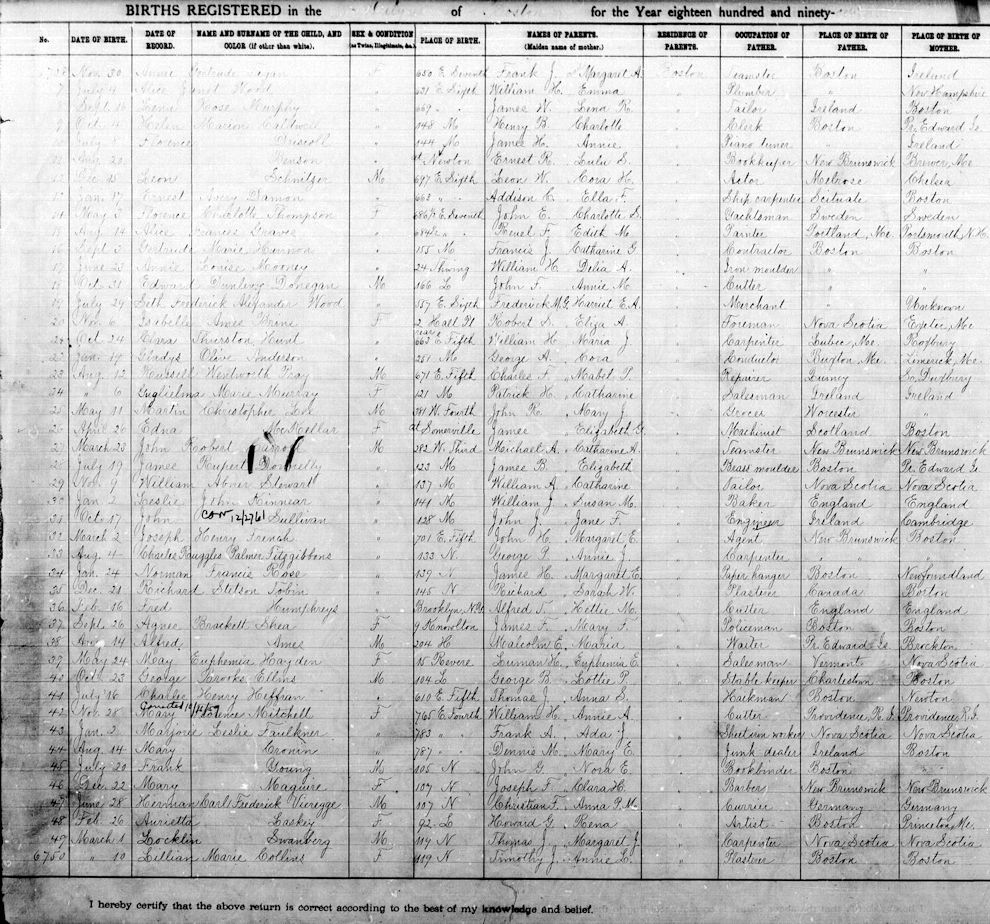 BIRTHS REGISTERED in the of for the Year eighteen hundred and ninety-
No. DATE OF BIRTH. DATE OF RECORD. NAME AND SURNAME OF THE CHILD, AND COLOR (if other than white). SEX & CONDITION (as Twins, Illegitimate, &c.) PLACE OF BIRTH. NAMES OF PARENTS. (Maiden name of mother.) RESIDENCE OF PARENTS. OCCUPATION OF FATHER. PLACE OF BIRTH OF FATHER. PLACE OF BIRTH OF MOTHER.
Nov. 30 Annie Gertrude F 650 E. Seventh Frank J. Margaret A. Boston Teamster Boston Ireland
July 4 Alice Wood " 631 E. Sixth William H. Emma Plumber " New Hampshire
Sept. 16 Rose Murphy " 669 " James W. Lena R. Tailor Ireland Boston
Oct. 4 Helen Marion Caldwell " 148 M Henry B. Charlotte Clerk Boston Pr. Edward Is.
July 8 Florence Driscoll " 144 M James H. Annie Piano tuner " Ireland
Aug. 20 Benson " at Newton Ernest R. Lulu S. Bookkeeper New Brunswick Brewer, Me.
Dec. 15 Leon Schnitzer M 697 E. Sixth Leon W. Cora H. Actor Melrose Chelsea
Jan. 27 Ernest Avery Damon " 663 " Addison C. Ella F. Ship carpenter Scituate Boston
14 May 3 Florence Charlotte Thompson F 686½ E. Seventh John E. Charlotte S. Yachtsman Sweden Sweden
Aug. 14 Alice Frances Graves " 684½ " Reuel F. Edith M. Painter Portland, Me. Portsmouth, N.H.
16 Sept. 3 Gertrude Marie Harmon " 155 M Francis J. Catharine G. Contractor Boston Boston
17 June 23 Annie Louise Mooney " 24 Ewing William H. Delia A. Iron moulder " "
Oct. 31 Edward Dunlevy Donegan M 166 L John F. Annie M. Cutter " "
19 July 24 Seth Frederick Alexander Wood " 157 E. Sixth Frederick M.G. Harriet E.A. Merchant " Unknown
20 Nov. 6 Isabelle Ames Brine F 2 Hall Pl. Robert S. Eliza A. Foreman Nova Scotia Exeter, Me.
Oct. 24 Clara Thurston Hunt " rear 663 E. Fifth William H. Maria J. Carpenter Lubec, Me. Roxbury
22 Jan. 17 Gladys Olive Anderson " 251 M George A. Cora Conductor Buxton, Me. Limerick, Me.
23 Aug. 12 Russell Wentworth Pray M 671 E. Fifth Charles F. Mabel T. Repairer Quincy So. Duxbury
24 " 6 Guglielma Marie Murray F 121 M Patrick H. Catharine Salesman Ireland Ireland
25 May 11 Martin Christopher Lee M 241 W. Fourth John R. Mary J. Grocer Worcester "
26 April 26 Edna McKellar F at Somerville James Elizabeth G. Machinist Scotland Boston
27 March 23 John Robert M 282 W. Third Michael A. Catharine A. Teamster New Brunswick New Brunswick
28 July 19 James Rupert Donnelly " 123 M James B. Elizabeth Brass moulder Boston Pr. Edward Is.
29 Nov. 9 William Abner Stewart " 137 M William A. Catharine Tailor Nova Scotia Nova Scotia
30 Jan. 2 Leslie John Kinnear " 141 M William J. Susan M. Baker England England
31 Oct. 17 John Cor 12/27/61 Sullivan " 128 M John J. Jane F. Engineer Ireland Cambridge
32 March 2 Joseph Henry French " 701 E. Fifth John H. Margaret E. Agent New Brunswick Boston
33 Aug. 4 Charles Ruggles Palmer Fitzgibbons " 133 N George P. Annie J. Carpenter " "
34 Jan. 24 Norman Francis Rose " 139 N James H. Margaret E. Paper hanger Boston Newfoundland
35 Dec. 21 Richard Stetson Tobin " 145 N Richard Sarah W. Plasterer Canada Boston
36 Feb. 16 Fred Humphreys " Brooklyn N.Y. Alfred T. Hettie M. Cutter England England
37 Sept. 26 Agnes Brackett Shea F 9 Knowlton James F. Mary F. Policeman Boston Boston
38 Nov. 14 Alfred Ames M 204 H Malcolm E. Maria Waiter Pr. Edward Is. Brockton
39 May 24 May Euphemia Hayden F 15 Revere Luman H. Euphemia E. Salesman Vermont Nova Scotia
40 Oct. 23 George Brooks Ellms M 104 L George B. Lottie P. Stable keeper Charlestown Boston
41 July 16 Charles Henry Heffran " 610 E. Fifth Thomas J. Anna S. Hackman Boston Newton
Corrected 10/16/59
42 Nov. 28 Mary Florence Mitchell F 765 E. Fourth William H. Annie A. Cutter Providence, R.I. Providence, R.I.
43 Jan. 2 Marjorie Leslie Faulkner " 783 " Frank A. Ada J. Sheet iron worker Nova Scotia Nova Scotia
44 Aug. 14 Mary Cronin " 787 " Dennis M. Mary E. Junk dealer Ireland Boston
45 July 20 Frank Young M 105 N John G. Nora E. Bookbinder Boston "
46 Dec. 22 Mary Maguire F 107 N Joseph F. Clara H. Barber New Brunswick New Brunswick
47 June 28 Herman Carl Frederick Vieregge M 107 N Christian F. Anna P.M. Currier Germany Germany
48 Feb. 26 Aurietta Laskey F 92 L Howard G. Rena Artist Boston Princeton, Me.
49 March 1 Locklin Swanberg M 114 N Thomas J. Margaret J. Carpenter Nova Scotia Nova Scotia
6750 " 10 Lillian Marie Collins F 119 N Timothy J. Annie L. Plasterer Boston Boston
I hereby certify that the above return is correct according to the best of my knowledge and belief.